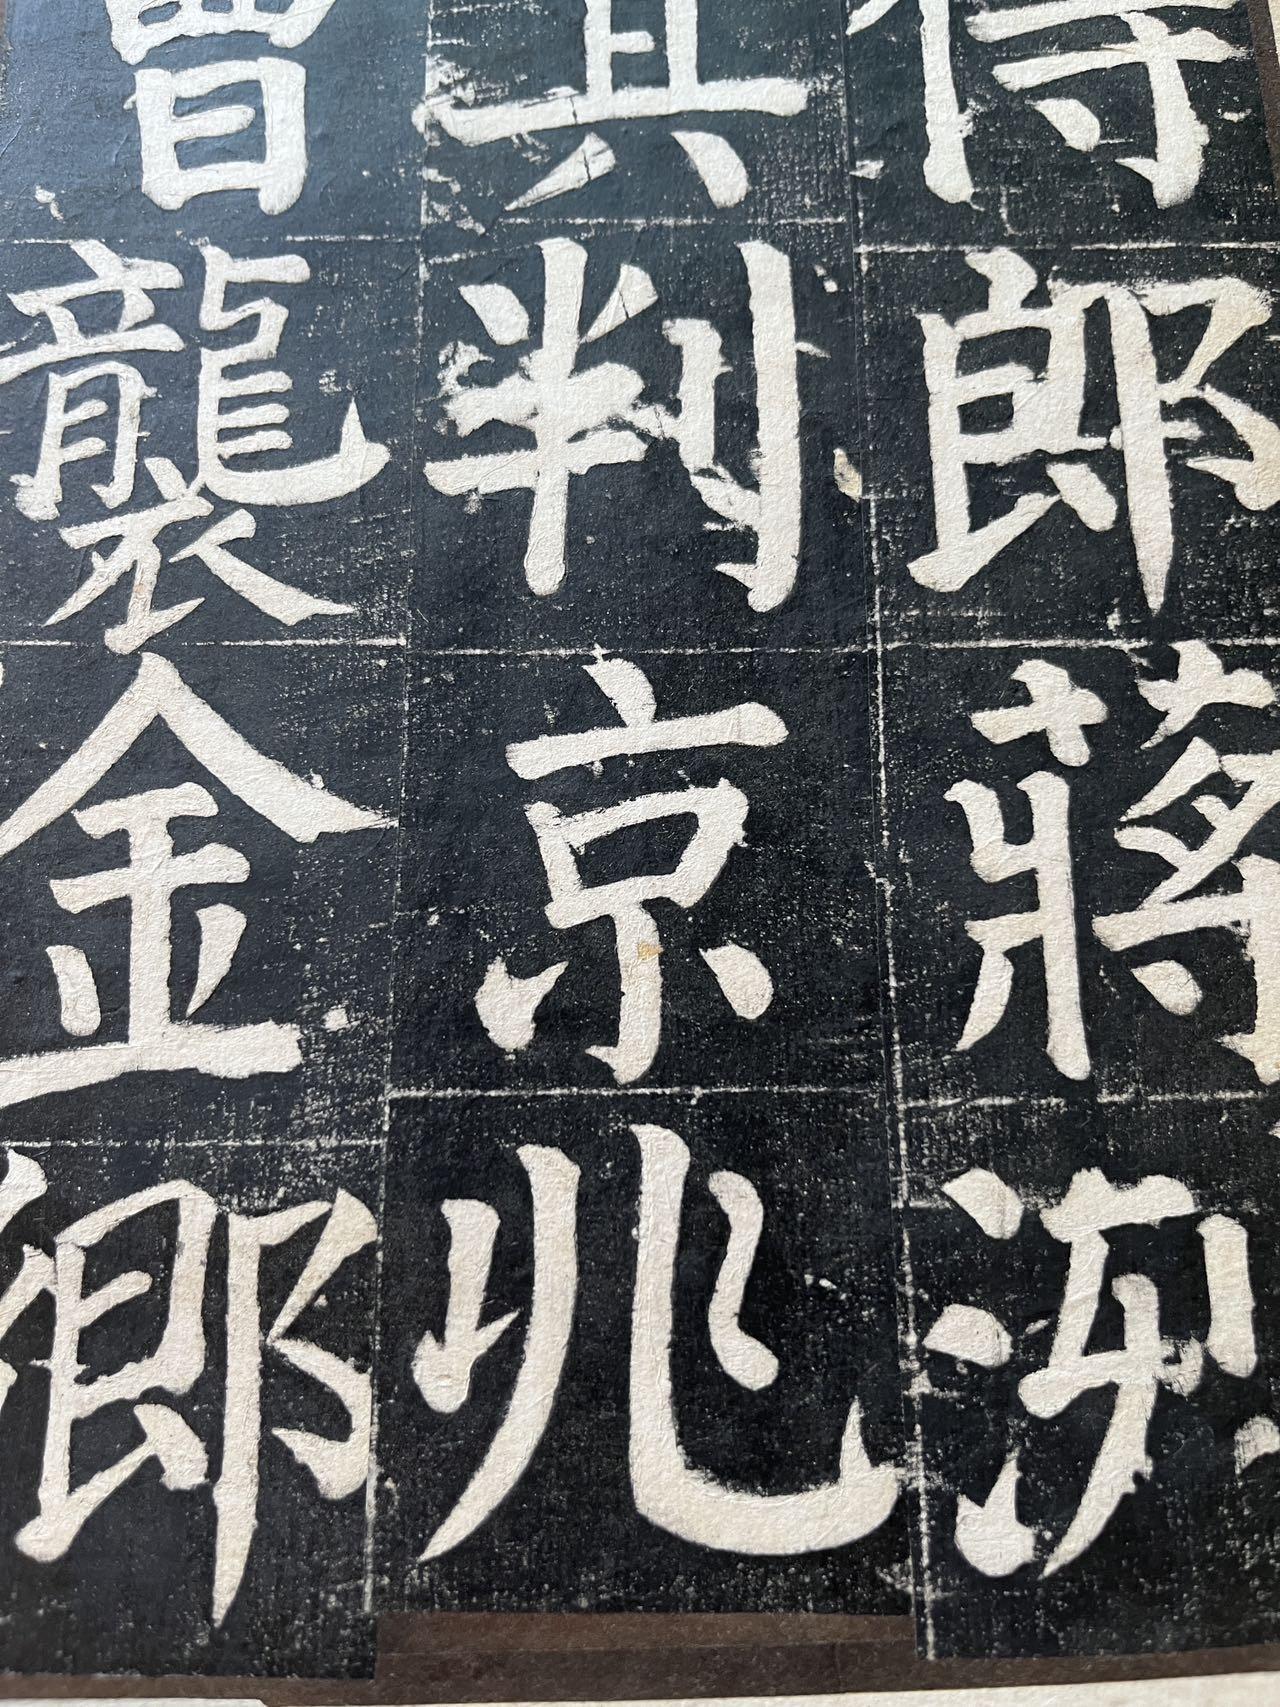 侍郎蔣洌
其判京兆
曾襲金鄉